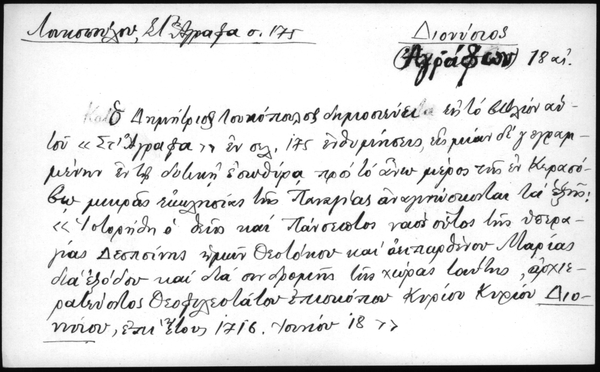 Λουκοπούλου, Στ' Άγραφα σ. 175
Διονύσιος
(Αγράφων) 18 αἰ.
Ὁ Δημήτριος Λουκόπουλος δημοσιεύει εἰς τό βιβλίον αὐ-
τοῦ «Στ' Ἄγραφα» ἐν σελ. 175 ἐνθυμήσεις, εἰς μίαν δέ γεγραμ-
μένην ἐν τῇ δυτικῇ ἐσωθύρᾳ πρός τό ἄνω μέρος τῆς ἐν Κερασό-
βῳ μικρᾶς ἐκκλησίας τῆς Παναγίας ἀναγινώσκονται τά ἑξῆς:
«Ἱστορήθη ὁ θεῖος καί πάνσεπτος ναός οὗτος τῆς ὑπερα-
γίας Δεσποίνης ἡμῶν Θεοτόκου καί ἀειπαρθένου Μαρίας
διά ἐξόδου καί διά συνδρομῆς τῆς χώρας ταύτης, ἀρχιε-
ρατεύοντος Θεοφιλεστάτου ἐπισκόπου Κυρίου Κυρίου Διο-
νυσίου, ἐπί ἔτους 1716. Ἰουνίου 18»